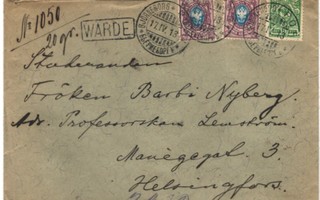 No 1050
20 gr.
WARDE
17.IV.13
Studeranden
Fröken Barbi Nyberg.
Adr. Professorskan Lemström.
Manègegat. 3.
Helsingfors.